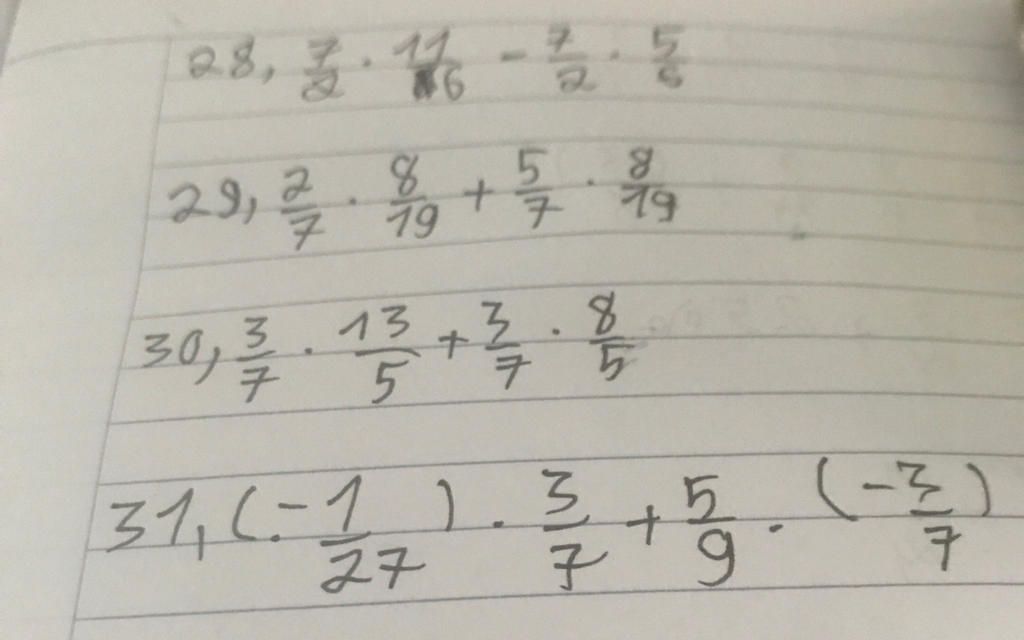 28, 7/2 · 11/6 - 7/2 · 5/6
29, 2/7 · 8/19 + 5/7 · 8/19
30, 3/7 · 13/5 + 3/7 · 8/5
31, (-1/27) · 3/7 + 5/9 · (-3/7)